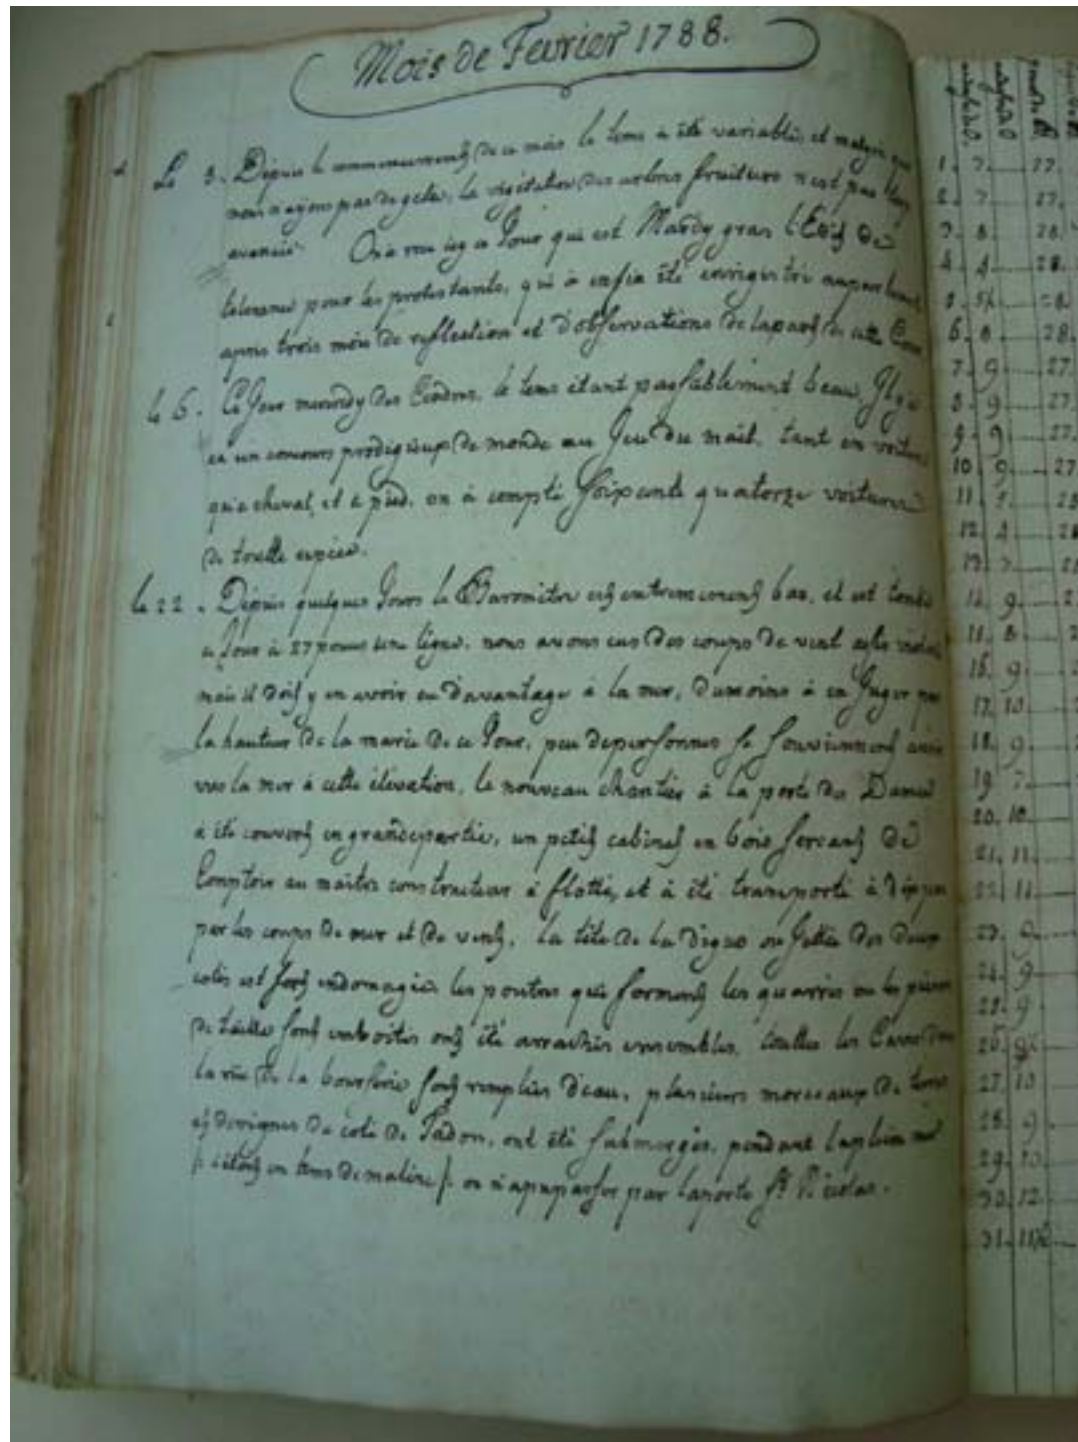 Mois de Fevrier 1788.
Le 5. Depuis le commencement de ce mois le tems a été variable, et malgré que
nous n'ayons pas de gelée, la végétation des arbres fruitiers n'est pas
avancée. On a reçu icy ce Jour qui est Mardy gras l'Edit de
tolerance pour les protestants, qui à enfin été enregistré au parlement
après trois mois de reflection et d'observations de la part de cette Cour
le 6. Ce Jour mercredy des Cendres, le tems étant passablement beau, Il y a
eu un concours prodigieux de monde au Jeu du mail, tant en voiture
qu'a cheval, et a pied. on à compté soixante quatorze voitures
de toutte espèce.
le 22. Depuis quelques Jours le Baromètre est extremement bas, et est tombé
ce Jour à 27 pouces une ligne. nous avons eu des coups de vent assés violents
mais il doit y en avoir eu davantage à la mer, dumoins à en Juger par
la hauteur de la marée de ce Jour, peu de personnes se souviennent avoir
vus la mer à cette élévation, le nouveau chantier à la porte des Dames
à été couvert en grande partie, un petit cabinet en bois servant de
Comptoir au maître constructeur à flotté, et à été transporté à
par les coups de mer et de vent, la tête de la digue ou Jettée des deux
cotés est fort endomagée les poutres qui forment les quarrés ou les pierres
de taille sont emboitées ont été arrachées ensembles, touttes les Caves dans
la rüe de la bourserie sont remplies d'eau, plusieurs morceaux de terres
et de vignes du coté de Tadon, ont été submergés, pendant la pleine mer
/: c'étoit en tems de maline :/ on n'a pu passer par la porte St. Nicolas.
1. 7. 27.
2. 7 27.
3. 8. 28.
4. 4. 28.
5. 5½ 28.
6. 8 28.
7. 9. 27.
8. 9 27.
9. 9 27.
10. 9 27
11.
12. 4
13. 7
14. 9.
15. 8
16. 9.
17. 10
18. 9
19. 7
20. 10
21. 11
22. 11
23. 9
24. 9
25. 9
26.
27. 10
28. 9
29. 10
30. 12
31. 11½